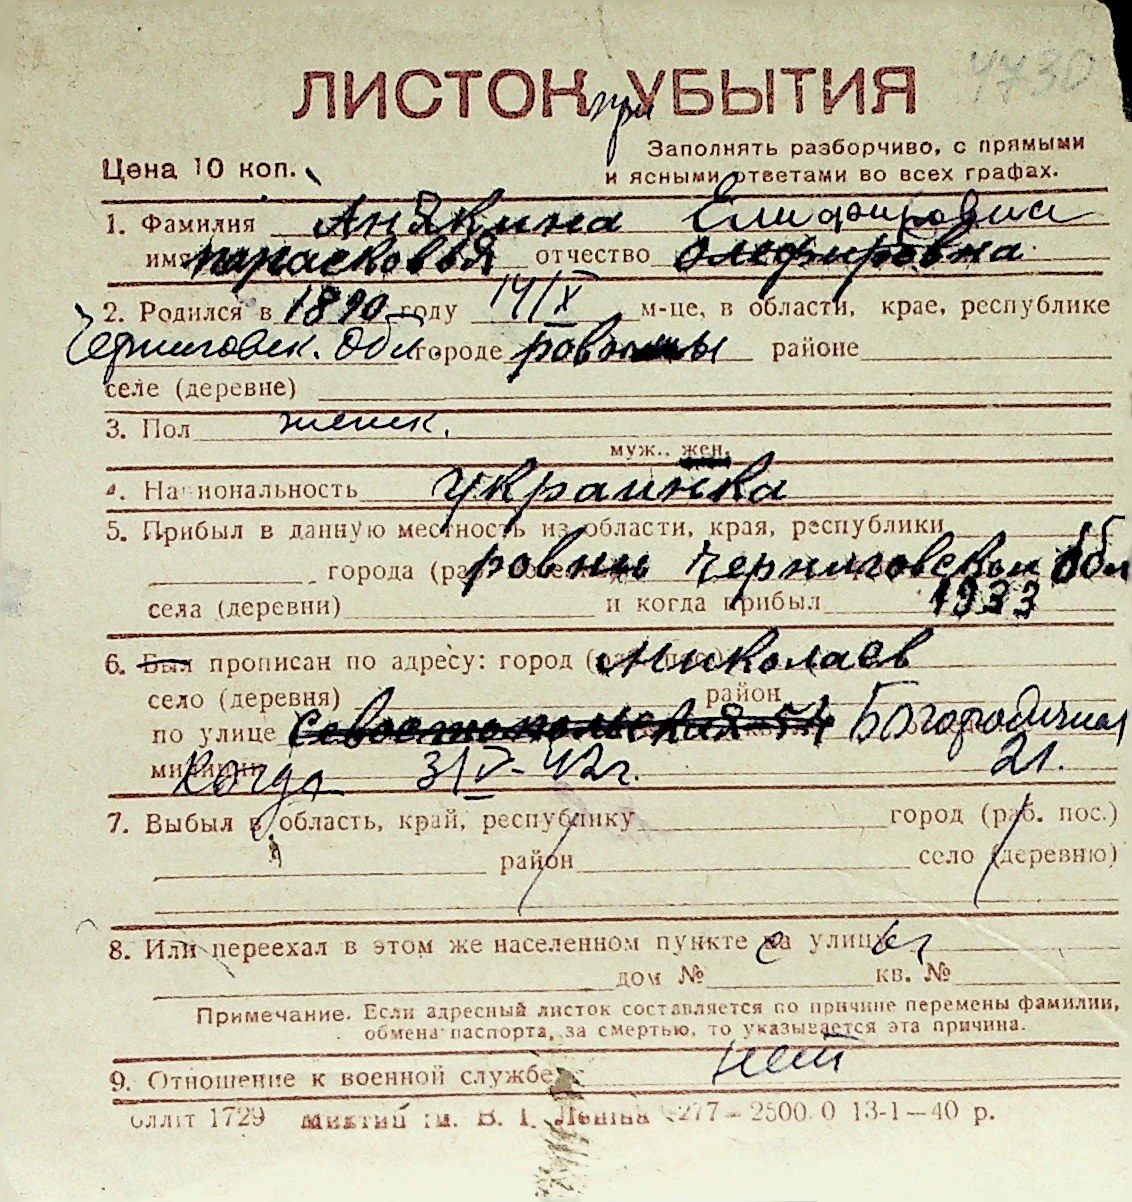 4730
ЛИСТОК при УБЫТИЯ
Цена 10 коп.
Заполнять разборчиво, с прямыми
и ясными ответами во всех графах.
1. Фамилия Анякина Елифировна
имя парасковья отчество Олефировна
2. Родился в 1890 году 14/X м-це, в области, крае, республике
Черниговск. Обл. городе районе
селе (деревне)
3. Пол женск.
муж., жен.
4. Национальность украинка
5. Прибыл в данную местность из области, края, республики
города (ра ровны Черниговской Обл
села (деревни) и когда прибыл 1933
6. Был прописан по адресу: город Николаев
село (деревня) район
по улице Севостопольская-54 Богородичная
Когда 31/V-42г. 21.
7. Выбыл в область, край, республику город (раб. пос.)
район село (деревню)
8. Или переехал в этом же населенном пункте на улицу
дом № кв. №
Примечание. Если адресный листок составляется по причине перемены фамилии,
обмена паспорта, за смертью, то указывается эта причина.
9. Отношение к военной службе нет
1729 В. І. Леніна 277–2500.0 13-1–40 р.